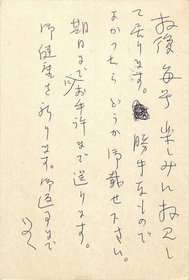 毎号楽しみに拝見し
て居ります。勝手なもので
よかつたらどうか御載せ下さい。
期日までお手許まで送ります。
御健筆を祈ります。御返事まで